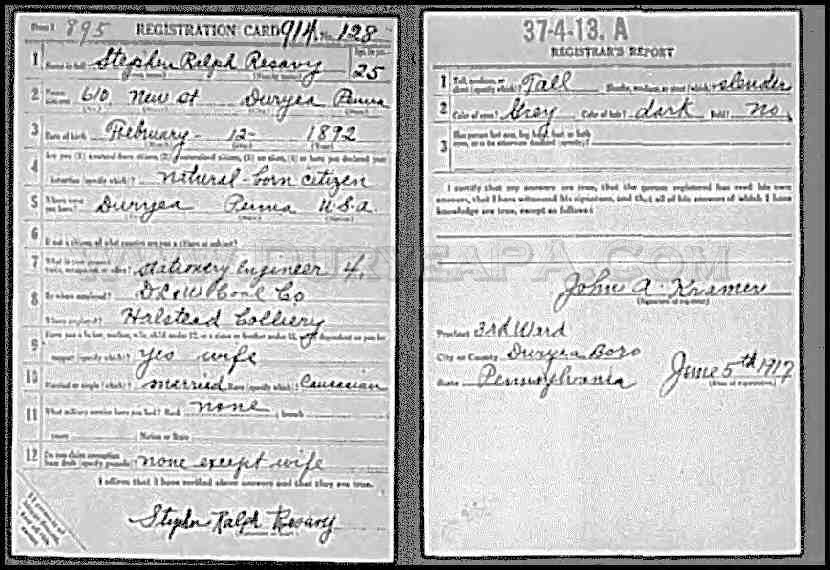 Form 1 895 REGISTRATION CARD 914 No. 128
1 Name in full Stephen Ralph Resavy Age, in yrs. 25
2 Home address 610 New St Duryea Penna
3 Date of birth February 12 1892
4 Are you (1) a natural-born citizen, (2) a naturalized citizen, (3) an alien, (4) or have you declared your
intention (specify which)? natural-born citizen
5 Where were you born? Duryea Penna U.S.A
6 If not a citizen, of what country are you a citizen or subject?
7 What is your present trade, occupation, or office? Stationery Engineer 4.
8 By whom employed? DL&W Coal Co
Where employed? Halstead Colliery
9 Have you a father, mother, wife, child under 12, or a sister or brother under 12, dependent on you for
support (specify which)? yes wife
10 Married or single (which)? married Race (specify which)? Caucasian
11 What military service have you had? Rank none branch
years Nation or State
12 Do you claim exemption from draft (specify grounds)? none except wife
I affirm that I have verified above answers and that they are true.
Stephen Ralph Resavy
37-4-13. A
REGISTRAR'S REPORT
1 Tall, medium, or short (specify which)? Tall Slender, medium, or stout (which)? slender
2 Color of eyes? Grey Color of hair? dark Bald? No
3 Has person lost arm, leg, hand, foot, or both
eyes, or is he otherwise disabled (specify)?
I certify that my answers are true, that the person registered has read his own
answers, that I have witnessed his signature, and that all of his answers of which I have
knowledge are true, except as follows:
John A. Kramer
(Signature of registrar)
Precinct 3rd Ward
City or County Duryea Boro
State Pennsylvania June 5th 1917
(Date of registration)
WWW.DURYEAPA.COM